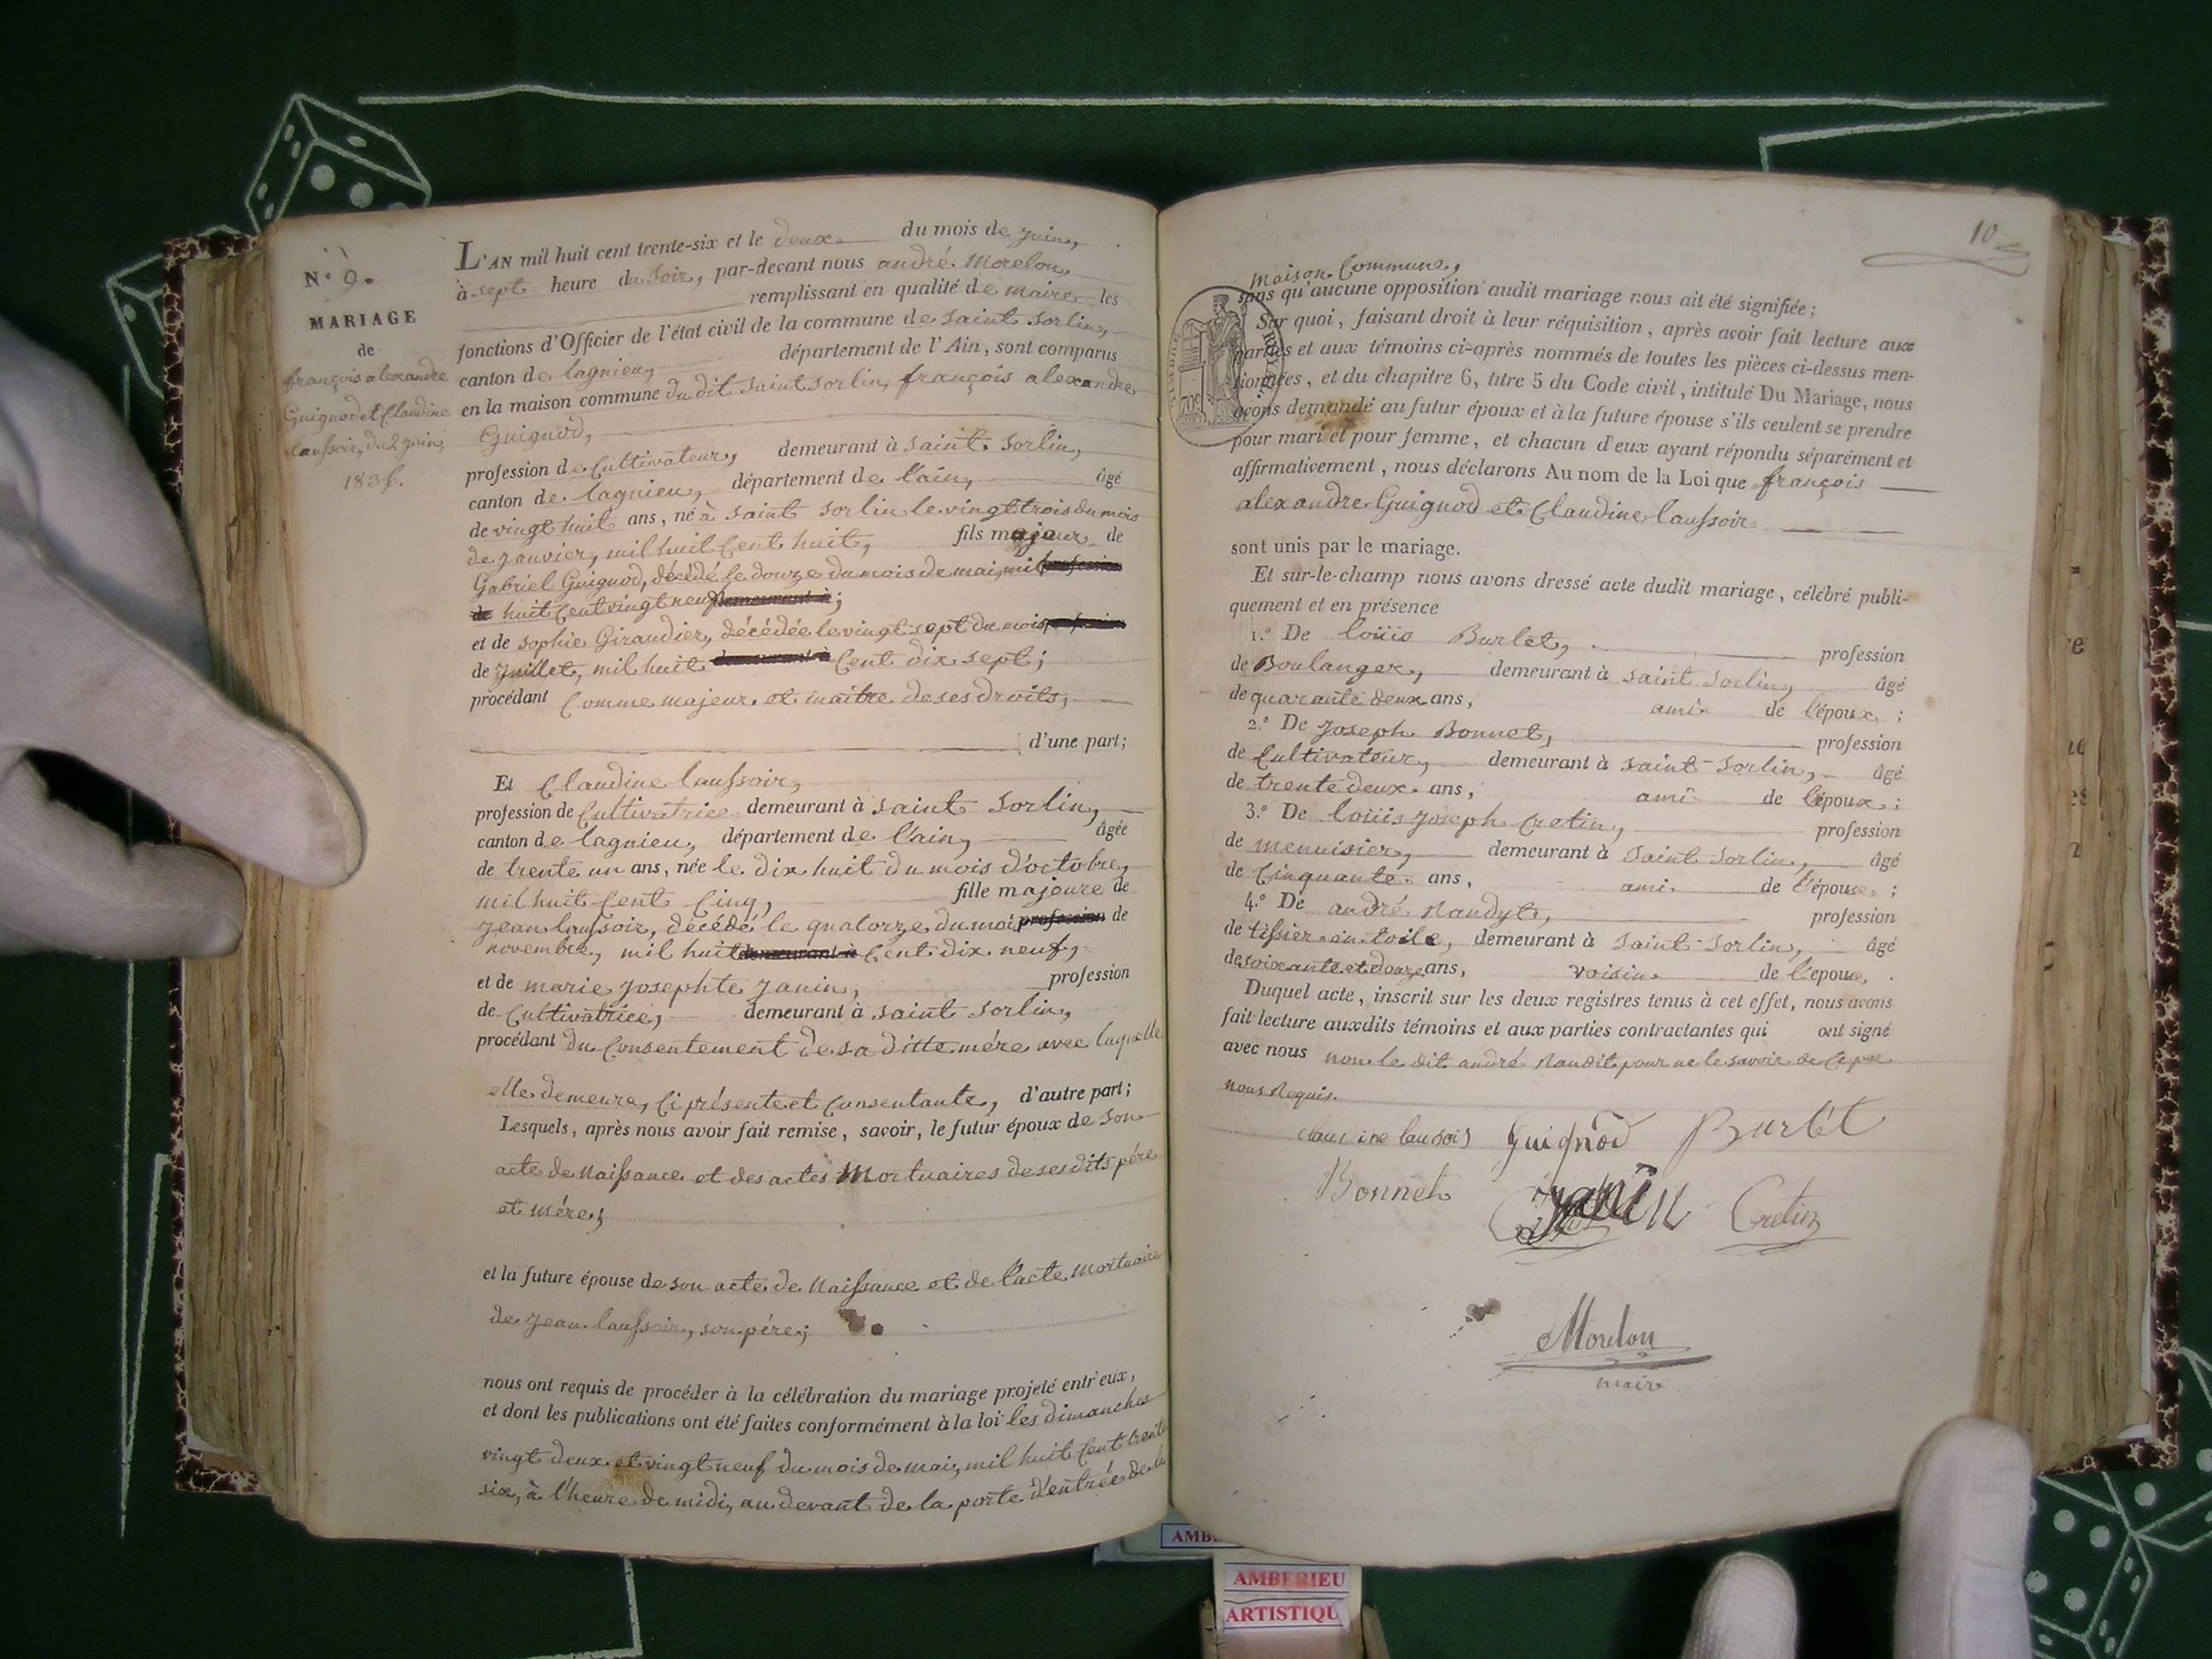 N.° 9.
MARIAGE
de
françois alexandre
Guignod et Claudine
laussoir, du 2 juin,
1836.
L'AN mil huit cent trente-six et le deux du mois de juin,
à sept heure du soir, par-devant nous andré Morelon,
remplissant en qualité de maire les
fonctions d'Officier de l'état civil de la commune de saint sorlin,
canton de lagnieu, département de l'Ain, sont comparus
en la maison commune du dit saint sorlin, françois alexandre
Guignod,
profession de Cultivateur, demeurant à saint sorlin,
canton de lagnieu, département de l'ain, âgé
de vingt huit ans, né à saint sorlin le vingt trois du mois
de janvier, mil huit Cent huit, fils majeur de
Gabriel Guignod, décédé le douze du mois de mai, mil profession
de huit Cent vingt neuf demeurant à ;
et de sophie Giraudier, décédée le vingt sept du mois profession
de juillet, mil huit demeurant à Cent dix sept ;
procédant Comme majeur et maître de ses droits,
d'une part ;
Et Claudine laussoir,
profession de Cultivatrice demeurant à saint sorlin,
canton de lagnieu, département de l'ain, âgée
de trente un ans, née le dix huit du mois d'octobre,
mil huit Cent Cinq, fille majeure de
jean laussoir, décédé le quatorze du mois profession de
novembre, mil huit demeurant à Cent dix neuf,
et de marie josephte janin, profession
de Cultivatrice, demeurant à saint sorlin,
procédant du Consentement de sa ditte mére avec laquelle
elle demeure, Ci présente et Consentante, d'autre part ;
Lesquels, après nous avoir fait remise, savoir, le futur époux de son
acte de Naissance et des actes Mortuaires de ses dits pére
et mére ;
et la future épouse de son acte de Naissance et de l'acte mortuaire
de jean laussoir, son pére ;
nous ont requis de procéder à la célébration du mariage projeté entr'eux,
et dont les publications ont été faites conformément à la loi les dimanches
vingt deux et vingt neuf du mois de mai, mil huit Cent trente
six, à l'heure de midi, au devant de la porte d'entrée de la
10
maison Commune,
sans qu'aucune opposition audit mariage nous ait été signifiée ;
Sur quoi, faisant droit à leur réquisition, après avoir fait lecture aux
parties et aux témoins ci-après nommés de toutes les pièces ci-dessus men-
tionnées, et du chapitre 6, titre 5 du Code civil, intitulé Du Mariage, nous
avons demandé au futur époux et à la future épouse s'ils veulent se prendre
pour mari et pour femme, et chacun d'eux ayant répondu séparément et
affirmativement, nous déclarons Au nom de la Loi que françois
alexandre Guignod et Claudine laussoir
sont unis par le mariage.
Et sur-le-champ nous avons dressé acte dudit mariage, célébré publi-
quement et en présence
1.° De loüis Burlet, profession
de Boulanger, demeurant à saint sorlin, âgé
de quarante deux ans, ami de l'époux ;
2.° De joseph Bonnet, profession
de Cultivateur, demeurant à saint-sorlin, âgé
de trente deux ans, ami de l'époux ;
3.° De loüis joseph Cretin, profession
de menuisier, demeurant à saint sorlin, âgé
de Cinquante ans, ami de l'épouse ;
4.° De andré Naudyt, profession
de tissier en toile, demeurant à saint-sorlin, âgé
de soixante et douze ans, voisin de l'epouse.
Duquel acte, inscrit sur les deux registres tenus à cet effet, nous avons
fait lecture auxdits témoins et aux parties contractantes qui ont signé
avec nous non le dit andré Naudit pour ne le savoir de Ce par
nous Requis.
claudine lausoir Guignod Burlet
Bonnet Cretin
Morelon
maire
TIMBRE ROYAL
70c
AMBERIEU
ARTISTIQU